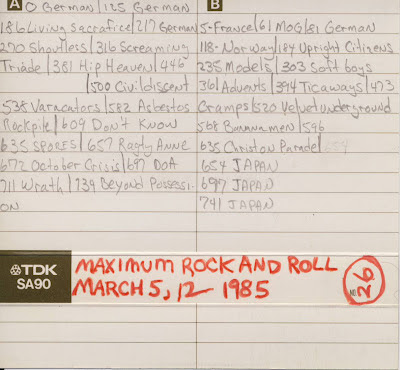 A
0 German | 125 German
186 Living sacrafice | 217 German
270 Shoutless | 316 Screaming
Triade | 381 Hip Heaven | 446
| 500 Civildiscent
538 Varacators | 582 Asbestos
Rockpile | 609 Don't Know
635 SPORES | 657 Ragly Anne
672 October Crisis | 697 DOA
711 Wrath | 739 Beyond Possessi-
ON
B
5-France | 61 MOG | 81 German
118-Norway | 184 Upright Citizens
235 Models | 303 Soft boys
361 Advents | 394 Ticaways | 473
Cramps | 520 Velvet underground
568 Bananamen | 596
635 Christon Parade | 654
654 JAPAN
697 JAPAN
741 JAPAN
TDK
SA90
MAXIMUM ROCK AND ROLL
MARCH 5, 12 1985
NO 26